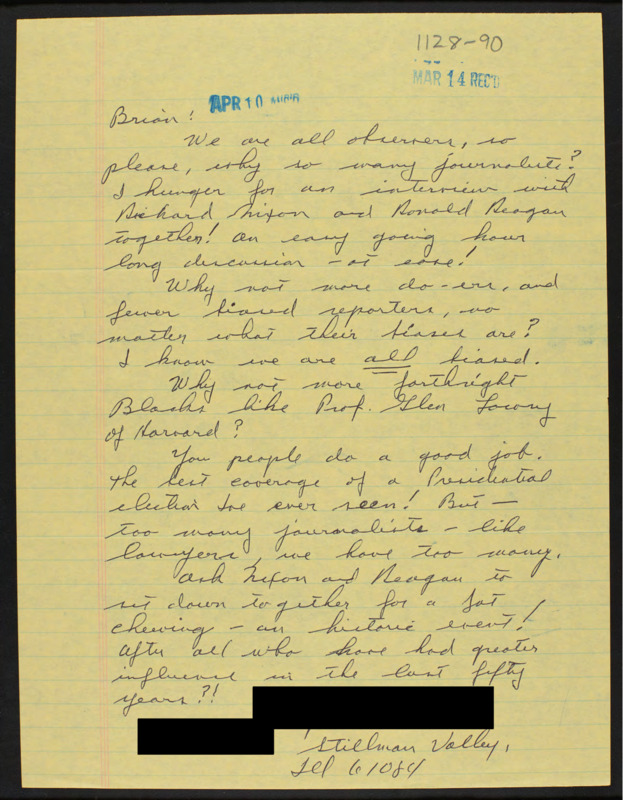 1128-90
MAR 14 REC'D
APR 10
Brian!
We are all observers, so
please, why so many journalists?
I hunger for an interview with
Richard Nixon and Ronald Reagan
together! An easy going hour
long discussion - at ease!
Why not more do-ers, and
fewer biased reporters, no
matter what their biases are?
I know we are all biased.
Why not more forthright
Blacks like Prof. Glen Lowry
of Harvard?
You people do a good job.
The best coverage of a Presidential
election I've ever seen! But -
too many journalists - like
lawyers, we have too many.
Ask Nixon and Reagan to
sit down together for a fat
chewing - an historic event!
After all who have had greater
influence in the last fifty
years?!
Stillman Valley,
Ill 61084